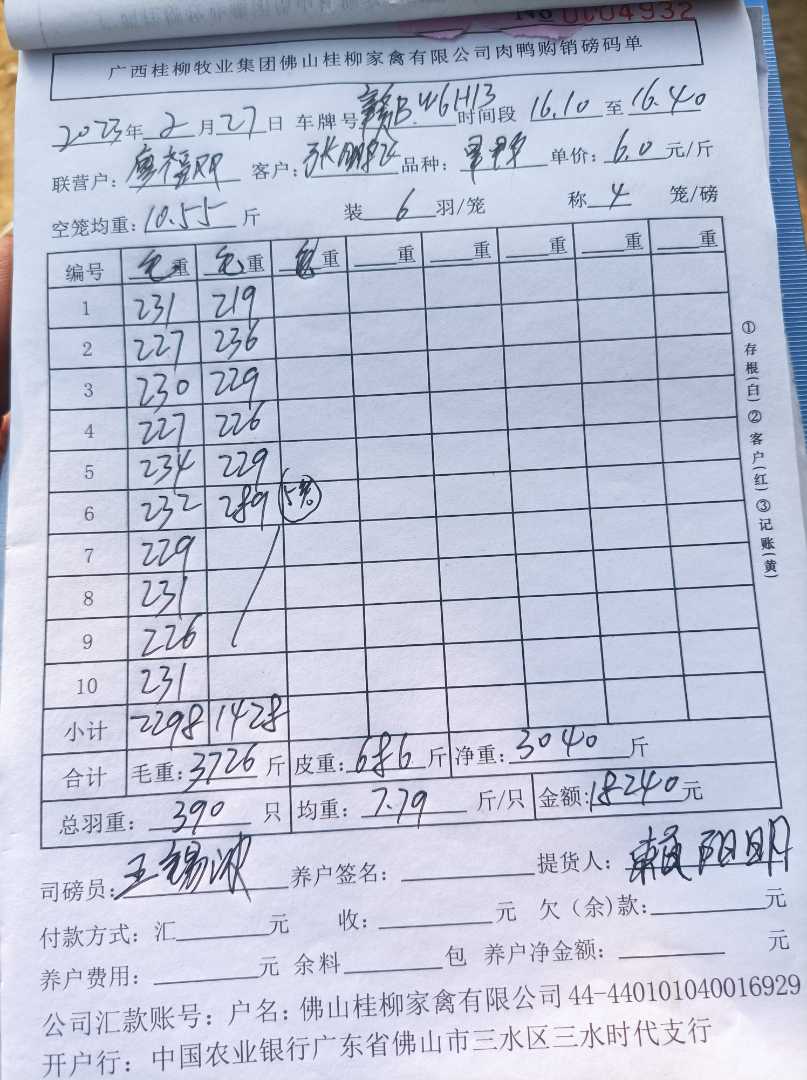 No 0004932
广西桂柳牧业集团佛山桂柳家禽有限公司肉鸭购销磅码单
2023年2月27日 车牌号赣B.46H13 时间段 16.10 至 16.40
联营户： 客户：张 品种： 单价：6.0元/斤
空笼均重：10.55斤 装6羽/笼 称4笼/磅
编号 毛重 毛重 重 重 重 重 重 重
1 231 219
2 227 236
3 230 229
4 227 226
5 234 229
6 232 289 5笼
7 229
8 231
9 226
10 231
小计 2298 1428
合计 毛重：3726斤 皮重：686斤 净重：3040斤
总羽重：390只 均重：7.79斤/只 金额：18240元
司磅员：王锡波 养户签名： 提货人：赖阳明
付款方式：汇 元 收： 元 欠（余）款： 元
养户费用： 元 余料 包 养户净金额： 元
公司汇款账号：户名：佛山桂柳家禽有限公司 44-440101040016929
开户行：中国农业银行广东省佛山市三水区三水时代支行
①存根(白)②客户(红)③记账(黄)